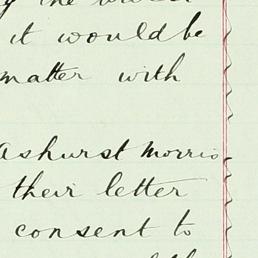 it would be
matter with
Ashurst Morris
their letter
consent to